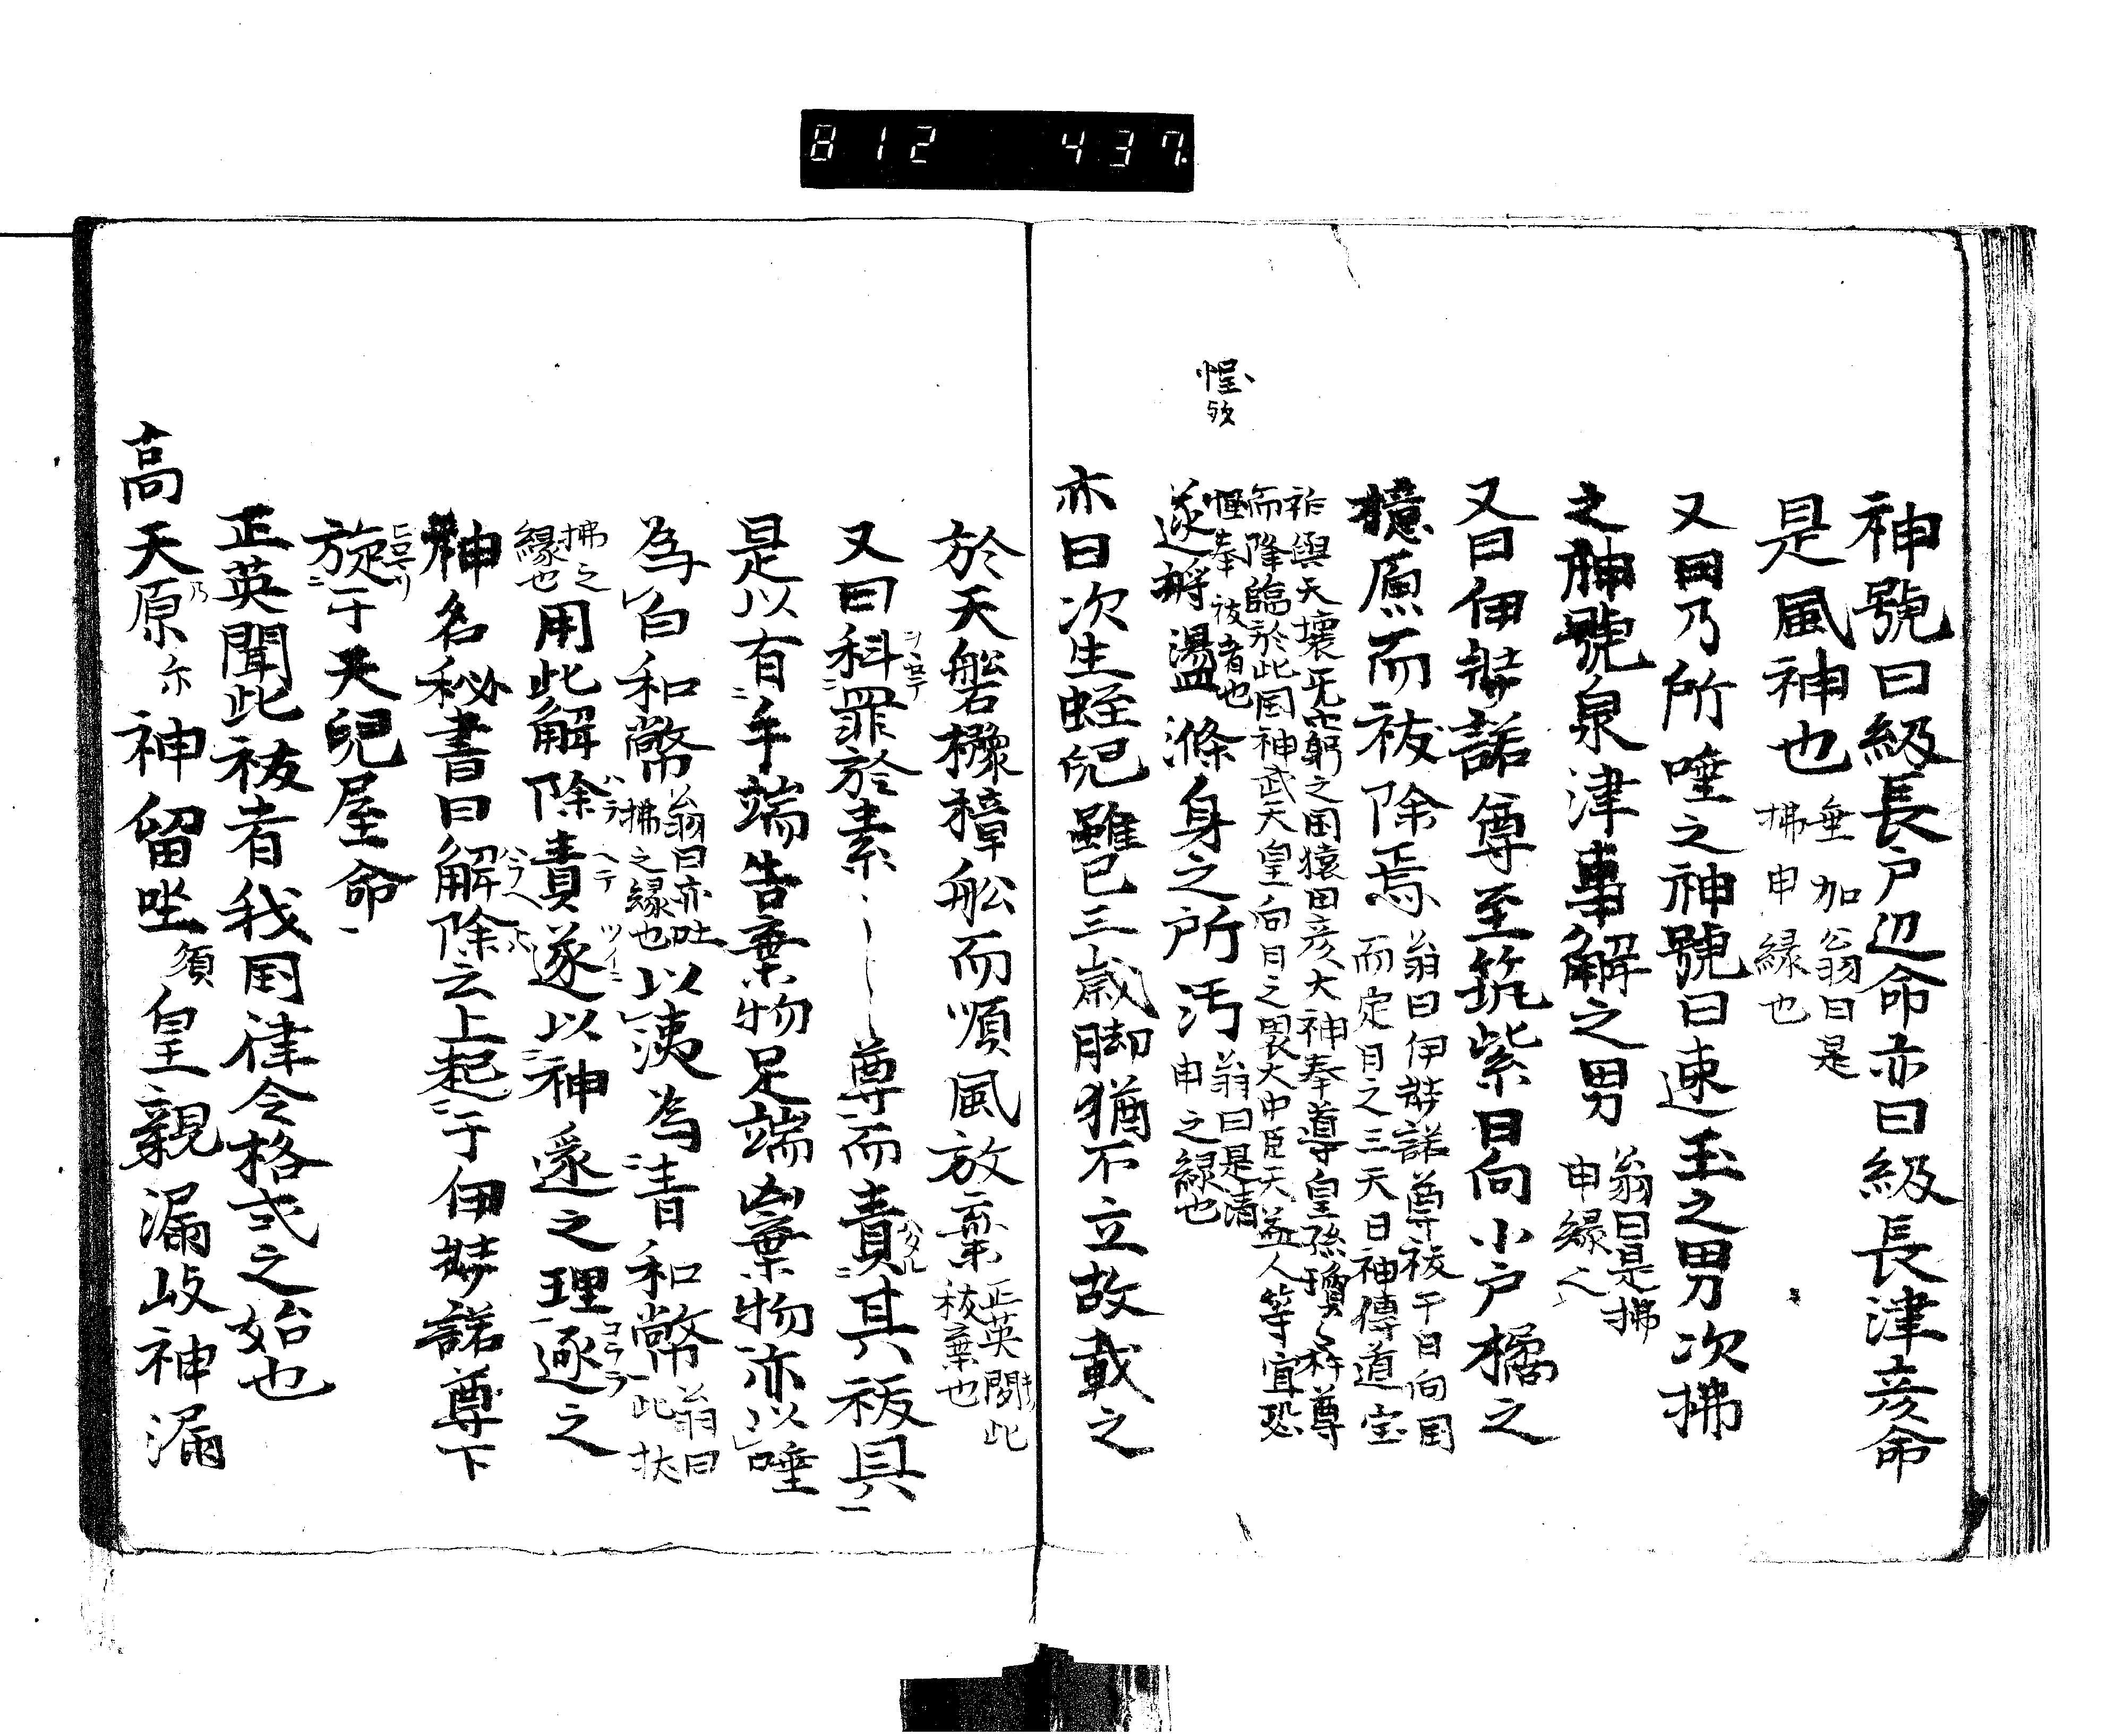 812 437
神號曰級長戸辺命亦曰級長津彦命
是風神也 垂加翁曰是
拂申縁也
又曰乃所唾之神號曰速玉之男次拂
之神號泉津事解之男 翁曰是拂
申縁〻
又曰伊弉諾尊至筑紫日向小戸橘之
檍原而祓除焉 翁曰伊弉諾尊祓干日向国
而定日之三天日神傳道宝
祚與天壤无窮之国猿田彦大神奉導皇孫瓊〻杵尊
而降臨於此国神武天皇向日之畏大中臣天益人等宜恐
惶奉祓者也
惶歟
遂将盪滌身之所汚 翁曰是清
申之縁也
亦曰次生蛭児雖已三歳脚猶不立故載之
於天磐櫲樟舩而順風放棄 正英聞此
祓棄也
又曰科罪於素〻〻〻尊而責其祓具
是以有手端吉棄物足端凶棄物亦以唾
為白和幣 翁曰亦吐
拂之縁也 以洟為青和幣 翁曰
此扶
拂之
縁也 用此解除責遂以神逐之理逐之
神名秘書曰解除云上起于伊弉諾尊下
旋于天児屋命
正英聞此祓者我国律令格式之始也
高天原亦神留坐須皇親漏岐神漏